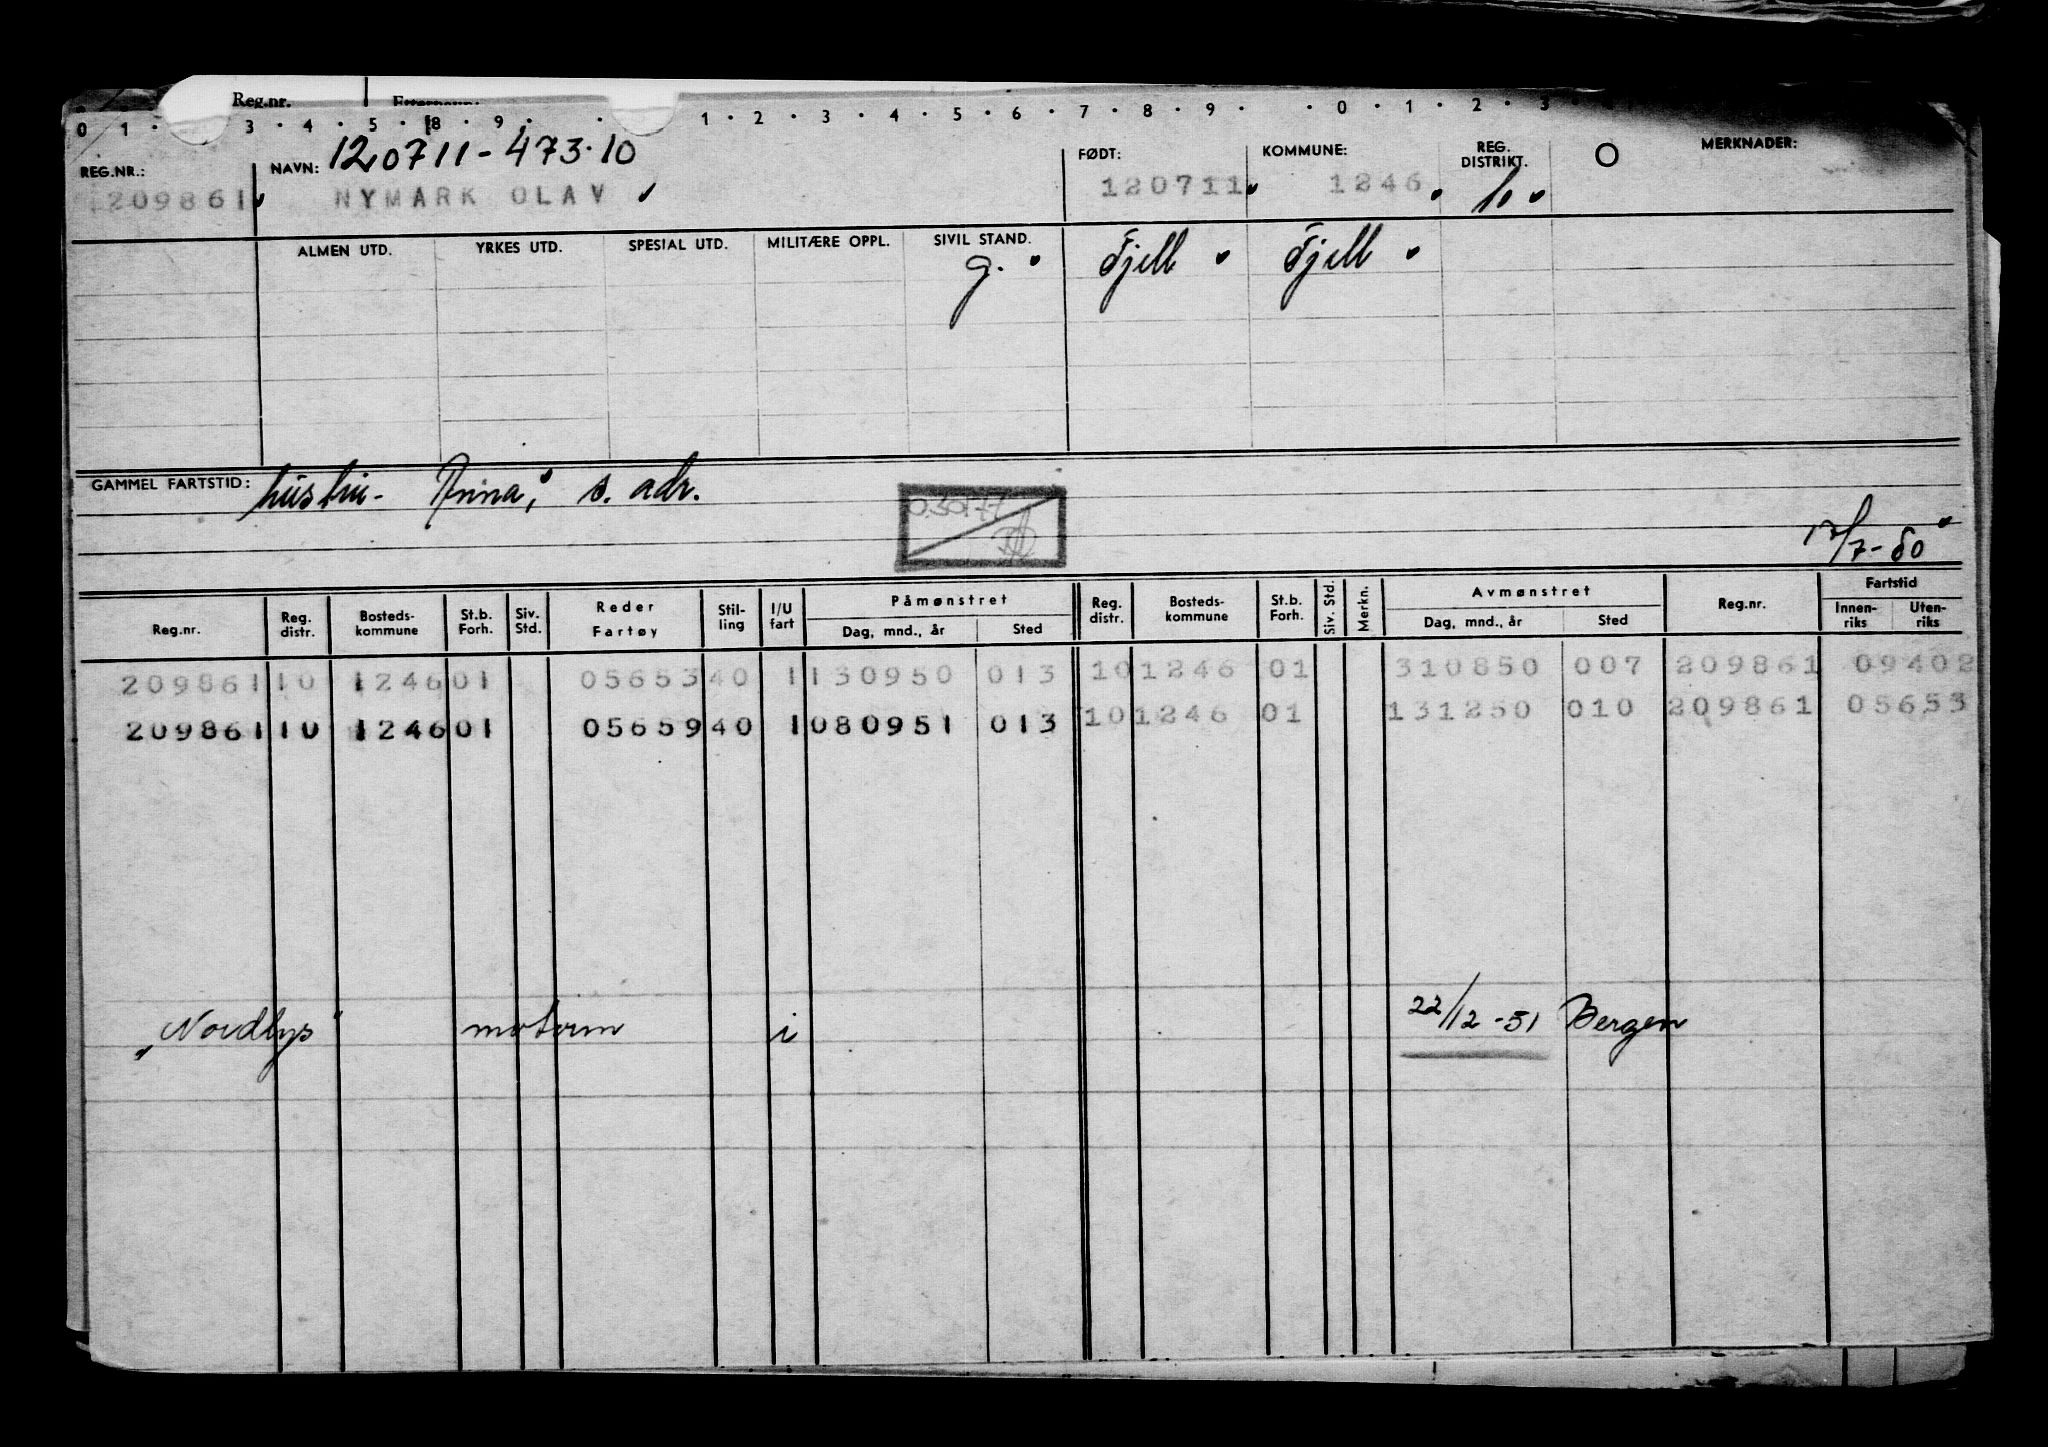 Reg.nr.
0 1 · 3 · 4 · 5 · 8 · 9 · · 1 · 2 · 3 · 4 · 5 · 6 · 7 · 8 · 9 · · 0 · 1 · 2 · 3
REG.NR.: NAVN: 120711-473.10 FØDT: KOMMUNE: REG. DISTRIKT. O MERKNADER:
209861 NYMARK OLAV 120711 1246 10
ALMEN UTD. YRKES UTD. SPESIAL UTD. MILITÆRE OPPL. SIVIL STAND.
g. Fjell Fjell
GAMMEL FARTSTID: hustru - Anna, s. adr.
0.30177
17/7-50
Reg.nr. Reg. distr. Bosteds- kommune St.b. Forh. Siv. Std. Reder Fartøy Stil- ling I/U fart Påmønstret Dag, mnd., år Sted Reg. distr. Bosteds- kommune St.b. Forh. Siv. Std. Merkn. Avmønstret Dag, mnd., år Sted Reg.nr. Fartstid Innen- riks Uten- riks
209861 10 1246 01 05653 40 1 130950 013 10 1246 01 310850 007 209861 09402
209861 10 1246 01 05659 40 1 080951 013 10 1246 01 131250 010 209861 05653
"Nordlys" motorm i 22/12-51 Bergen